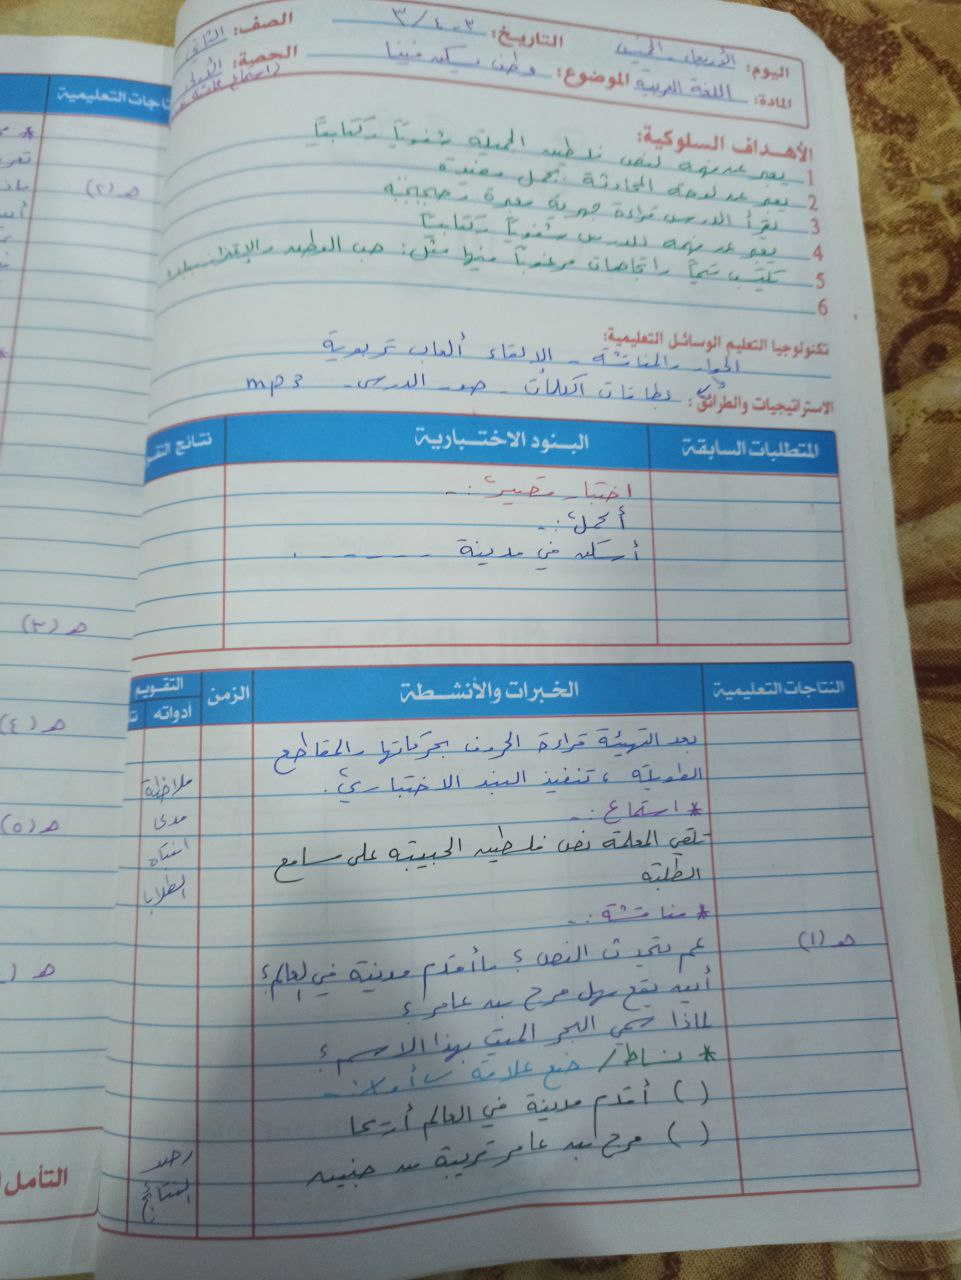 اليوم: الأربعاء - الخميس التاريخ: ٣ - ٤ / ٣ الصف: الثاني
المادة: اللغة العربية الموضوع: وطن يسكن فينا الحصة: الأولى
(استماع محادثة
الأهداف السلوكية:
1 يعبر عن فهمه لنص فلسطين الجميلة شفوياً وكتابياً
2 يعبر عن لوحة المحادثة بجمل مفيدة
3 يقرأ الدرس قراءة جهرية معبرة وصحيحة
4 يعبر عن فهمه للدرس شفوياً وكتابياً
5 يكتسب قيماً واتجاهات مرغوباً فيها مثل: حب الوطن والاعتزاز
6
تكنولوجيا التعليم الوسائل التعليمية:
الحوار والمناقشة - الإلقاء ألعاب تربوية
الاستراتيجيات والطرائق: بطاقات الكلمات - صور الدرس - mp3
المتطلبات السابقة البنود الاختبارية نتائج
اختبار قصير:
أكمل:
أسكن في مدينة ـ ـ ـ ـ ـ .
النتاجات التعليمية الخبرات والأنشطة الزمن التقويم
أدواته
بعد التهيئة قراءة الحروف بحركاتها والمقاطع
الطويلة ، تنفيذ البند الاختباري.
ملاحظة
* استماع :-
مدى
تلقي المعلمة نص فلسطين الحبيبة على مسامع
انتباه
الطلبة
الطلاب
* مناقشة :-
هـ (١) عم يتحدث النص ؟ ما أقدم مدينة في العالم؟
أين يقع سهل مرج بن عامر ؟
لماذا سمي البحر الميت بهذا الاسم ؟
* نشاط / ضع علامة √ أو × :-
( ) أقدم مدينة في العالم أريحا
( ) مرج بن عامر قريبة من جنين
رصد
النتائج
اجات التعليمية
هـ (٢)
هـ (٣)
هـ (٤)
هـ (٥)
التأمل